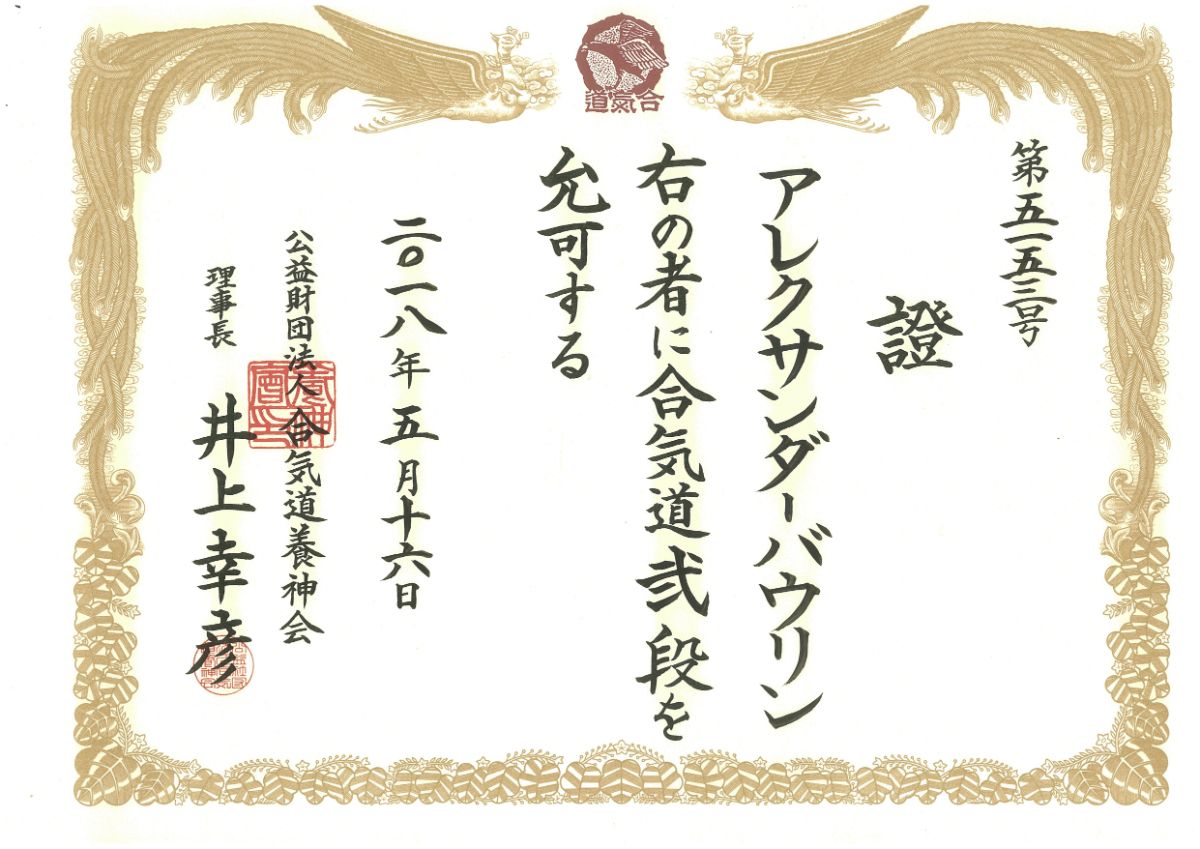 合氣道
第五一五三号
證
アレクサンダーバウリン
右の者に合気道弐段を
允可する
二〇一八年五月十六日
公益財団法人合気道養神会
理事長 井上幸彦